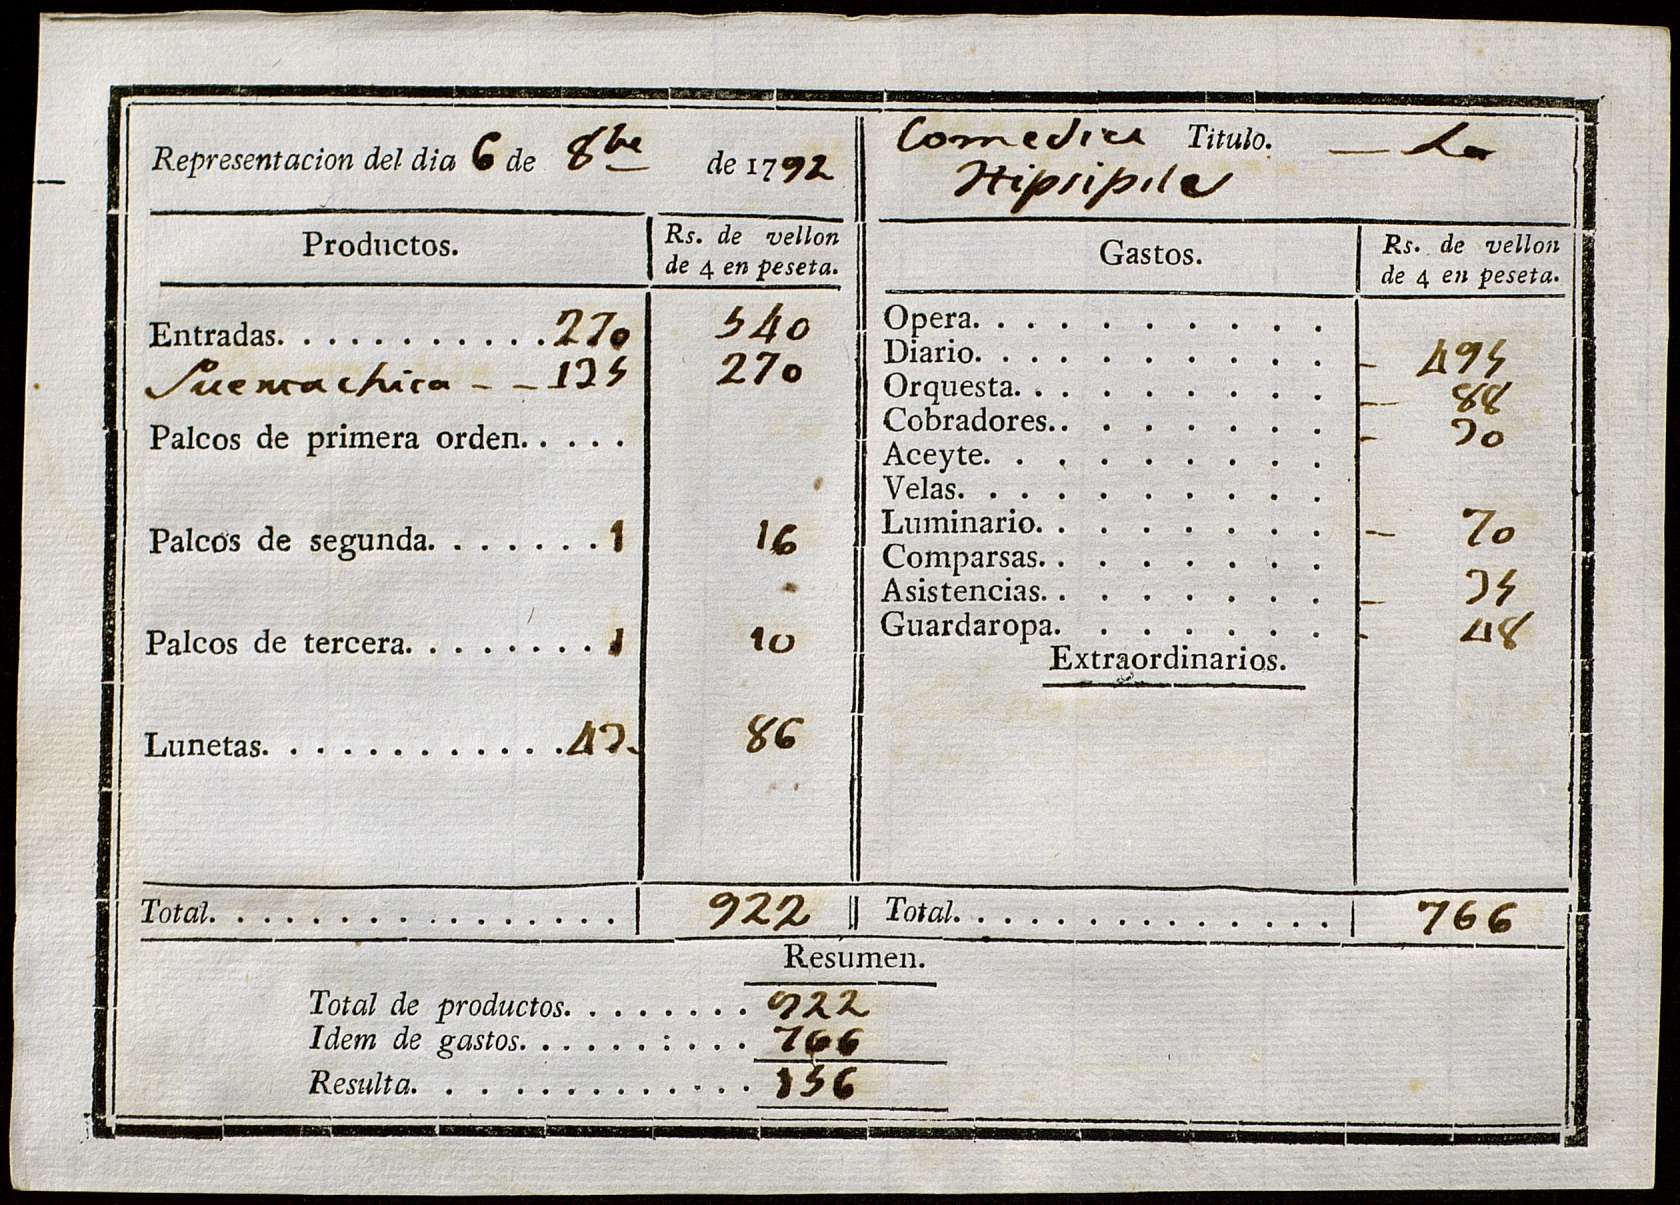 Representacion del dia 6 de 8bre de 1792
Comedia Titulo. — La
Hipsipile
Productos. Rs. de vellon
de 4 en peseta.
Entradas. . . . . . . . . . . 270 540
Puerta chica - - 135 270
Palcos de primera orden. . . . .
Palcos de segunda. . . . . . . 1 16
Palcos de tercera. . . . . . . . 1 10
Lunetas. . . . . . . . . . . . 43 86
Total. . . . . . . . . . . . . . . . 922
Gastos. Rs. de vellon
de 4 en peseta.
Opera. . . . . . . . . .
Diario. . . . . . . . . . - 495
Orquesta. . . . . . . . . — 88
Cobradores. . . . . . . . - 30
Aceyte. . . . . . . . .
Velas. . . . . . . . . .
Luminario. . . . . . . . — 70
Comparsas. . . . . . . .
Asistencias. . . . . . . . — 35
Guardaropa. . . . . . . - 48
Extraordinarios.
Total. . . . . . . . . . . . . . 766
Resumen.
Total de productos. . . . . . . . 922
Idem de gastos. . . . . . : . . . 766
Resulta. . . . . . . . . . . . . 156